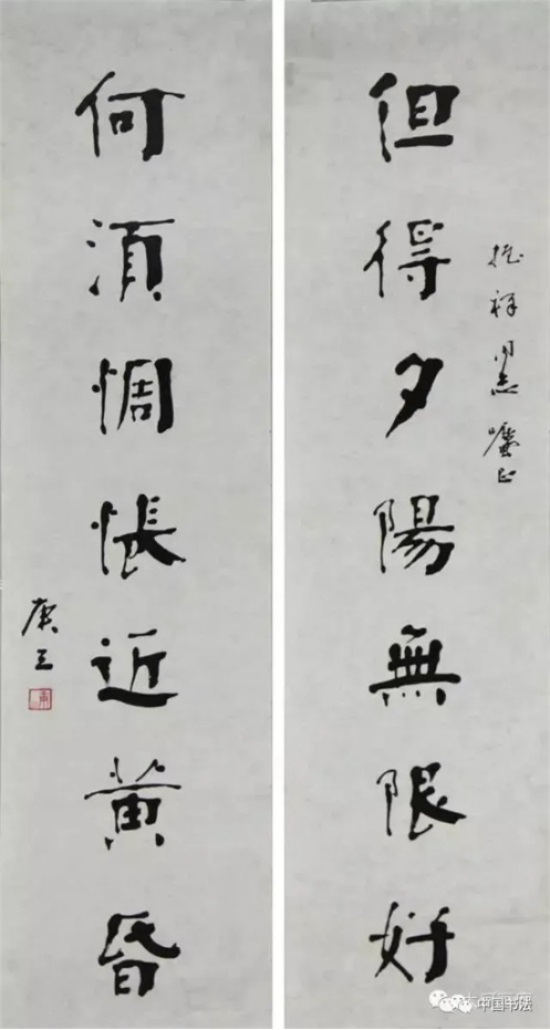 但得夕陽無限好
祥同志囑正
何須惆悵近黃昏
康
中国书法